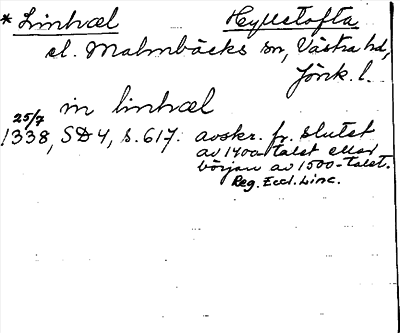 * Linhæl Hyllstofta
el. Malmbäcks sn, Västra hd,
Jönk. l.
in linhæl
25/7
1338, SD4, s. 617. avskr. fr. slutet
av 1400-talet eller
början av 1500-talet.
Reg. Eccl. Linc.